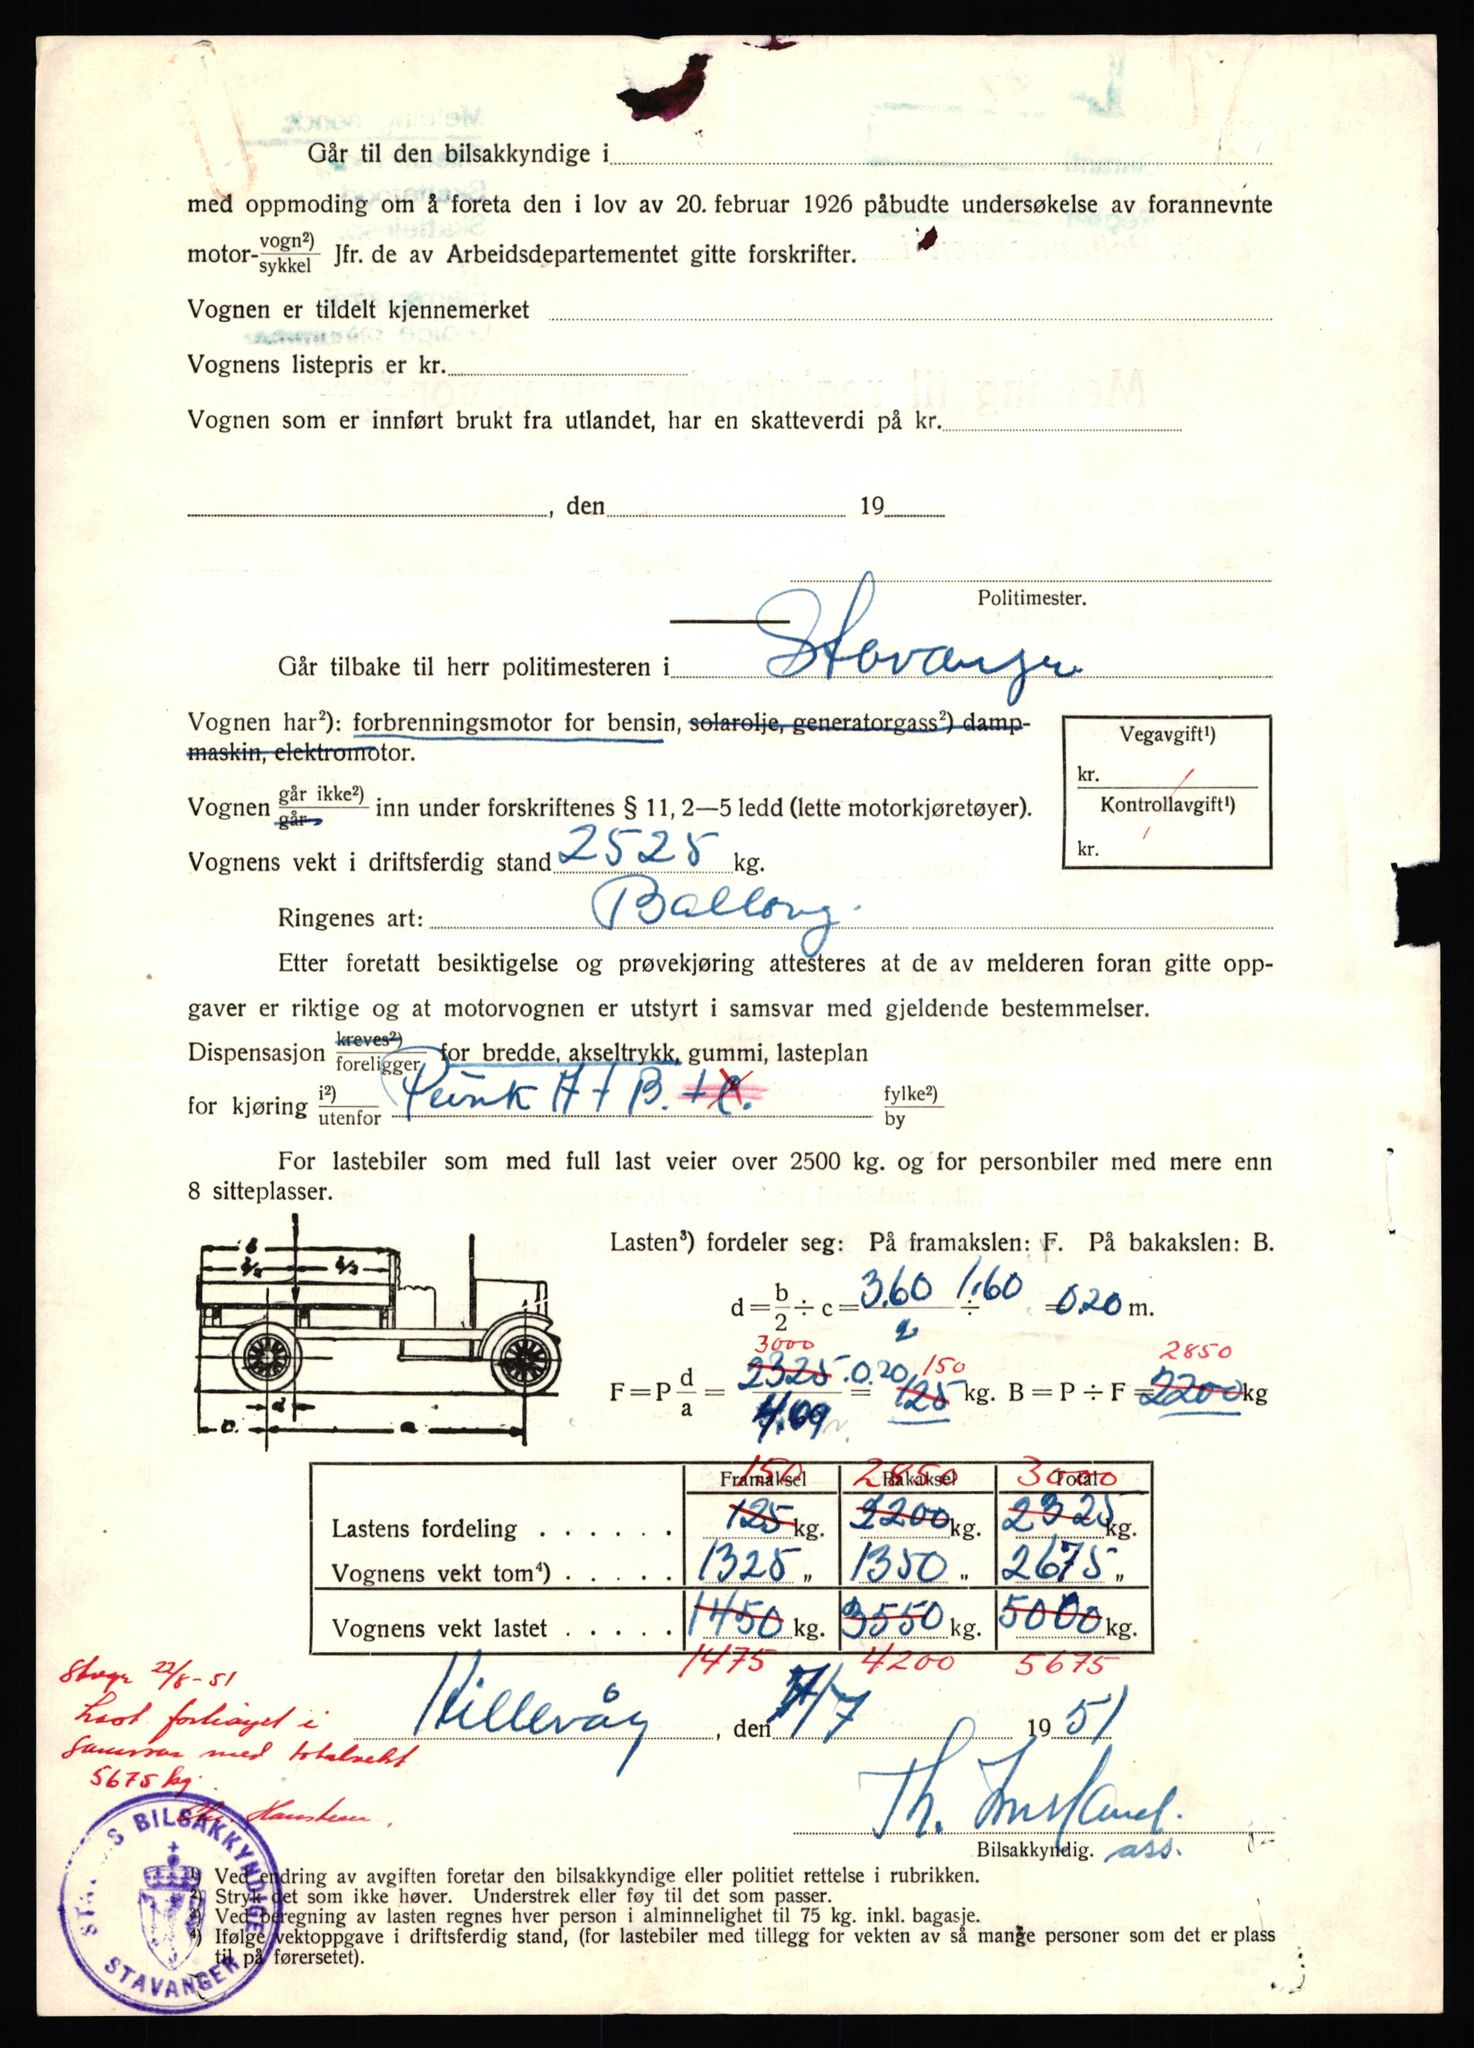 Går til den bilsakkyndige i
med oppmoding om å foreta den i lov av 20. februar 1926 påbudte undersøkelse av forannevnte
motor- vogn²) / sykkel Jfr. de av Arbeidsdepartementet gitte forskrifter.
Vognen er tildelt kjennemerket
Vognens listepris er kr.
Vognen som er innført brukt fra utlandet, har en skatteverdi på kr.
, den 19
Politimester.
Går tilbake til herr politimesteren i Stavanger
Vognen har²): forbrenningsmotor for bensin, solarolje, generatorgass²) damp-
maskin, elektromotor.
Vegavgift¹)
kr.
Kontrollavgift¹)
kr.
Vognen går ikke²) / går inn under forskriftenes § 11, 2—5 ledd (lette motorkjøretøyer).
Vognens vekt i driftsferdig stand 2525 kg.
Ringenes art: Ballong.
Etter foretatt besiktigelse og prøvekjøring attesteres at de av melderen foran gitte opp-
gaver er riktige og at motorvognen er utstyrt i samsvar med gjeldende bestemmelser.
Dispensasjon kreves²) / foreligger for bredde, akseltrykk, gummi, lasteplan
for kjøring i²) / utenfor Punk A + B. + C. fylke²) / by
For lastebiler som med full last veier over 2500 kg. og for personbiler med mere enn
8 sitteplasser.
Lasten³) fordeler seg: På framakslen: F. På bakakslen: B.
d = b/2 ÷ c = 3.60/2 ÷ 1.60 = 0.20 m.
3000 150 2850
F = P d/a = 2325 . 0.20 / 4.09 = 125 kg. B = P ÷ F = 2200 kg
b
d
c.
a
150 2850 3000
Framaksel Bakaksel Total
Lastens fordeling . . . . . . 125 kg. 2200 kg. 2325 kg.
Vognens vekt tom⁴) . . . . . 1325 „ 1350 „ 2675 „
Vognens vekt lastet . . . . . 1450 kg. 3550 kg. 5000 kg.
1475 4200 5675
Stvgr 22/8-51
Last forhøyet i
samsvar med totalvekt
5675 kg.
Hillevåg, den 7/7 1951
Th.
Bilsakkyndig. ass.
STATENS BILSAKKYNDIGE
STAVANGER
¹) Ved endring av avgiften foretar den bilsakkyndige eller politiet rettelse i rubrikken.
²) Stryk det som ikke høver. Understrek eller føy til det som passer.
³) Ved beregning av lasten regnes hver person i alminnelighet til 75 kg. inkl. bagasje.
⁴) Ifølge vektoppgave i driftsferdig stand, (for lastebiler med tillegg for vekten av så mange personer som det er plass
til på førersetet).